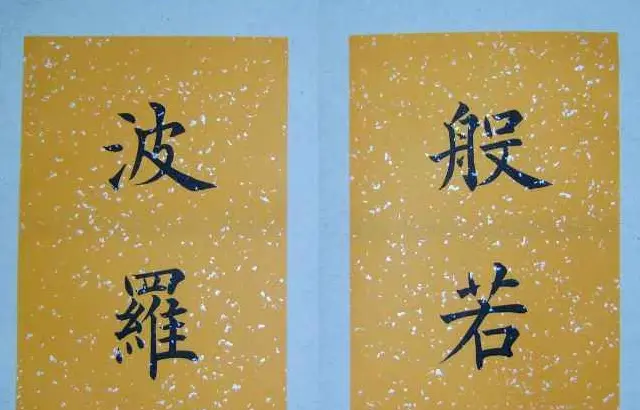 般若
波羅